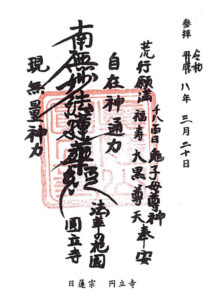 参拝
令和
平成 八年 三月 二十日
荒行願満 千八百日 鬼子母尊神
福寿 大黒尊天 奉安
自在神通力
南無妙法蓮華経
現無量神力
法華の花園
圓立寺
日蓮宗 円立寺